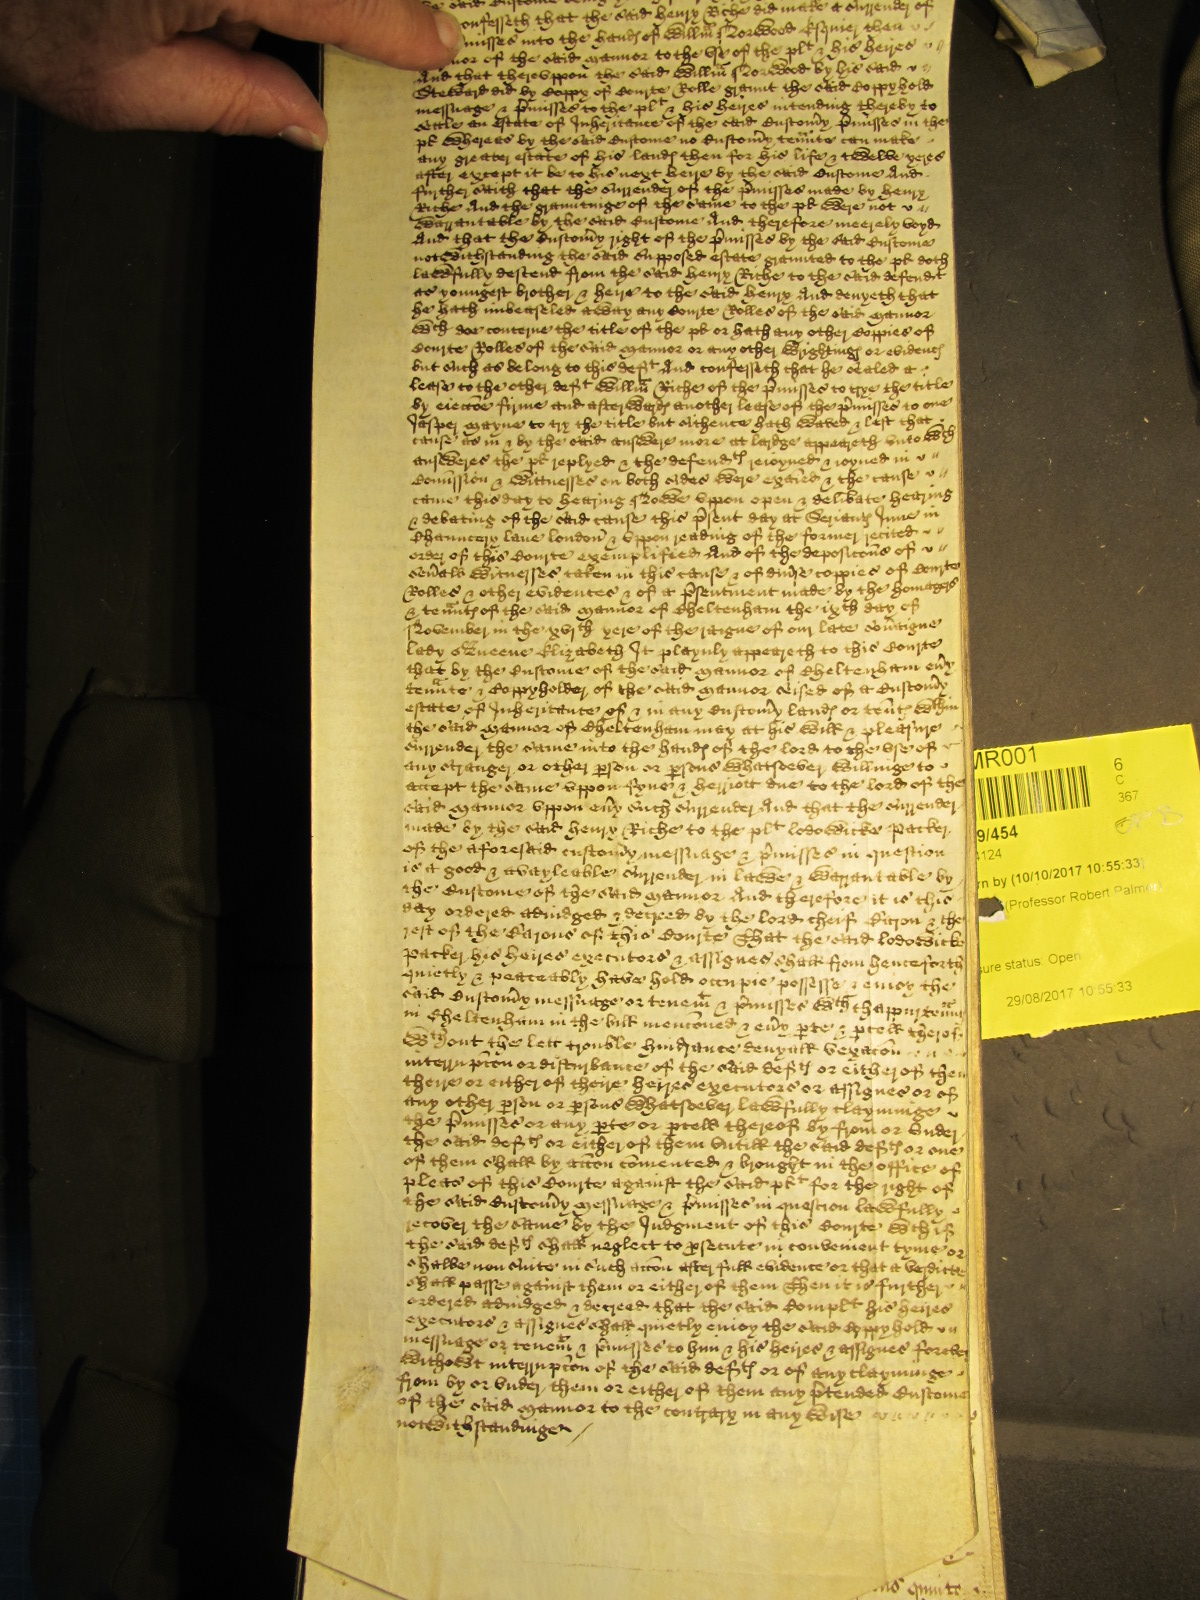 said Custome being
confesseth that the said Henry Riche did make a surrender of
p'misses into the hand of Willm Norwood Esquier then
of the said Mannor to the vse of the plt & his heires
And that therevppon the said Willm Norwood by his said
Steward did by Coppy of Courte Rolle graunt the said Coppyhold
messuage & p'misses to the plt & his heires intending thereby to
settle an estate of Inheritance of the said Custom'y p'misses in the
plt Whereas by the said Custome no Custom'y ten'nte can make
any greater estate of his land then for his life & twelve yeres
after except it be to his next heire by the said Custome And
further saith that the surrender of the p'misses made by Henry
Riche And the grauntinge of the same to the plt Were not
Warrantable by the said Custome And therefore meerely voyd
And that the Custom'y right of the p'misses by the said Custome
notwithstanding the said supposed estate graunted to the plt doth
lawfully descend from the said Henry Riche to the said defendt
as youngest brother & heire to the said Henry And denyeth that
he hath imbeaseled away any Courte Rolles of the said Mannor
Wch doe concerne the title of the plt or hath any other Coppies of
Courte Rolles of the said Mannor or any other Wrighting or evidenc
but such as belong to this deft And confesseth that he sealed a
lease to the other deft Willm Riche of the p'misses to trye the title
by eieccõe firme and afterward another lease of the p'misses to one
Jasper Mayne to try the title but sithence hath Waved & left that
cause as in & by the said answere more at lardge appeareth vnto Wch
answeres the plt replyed & the defendt reioyned & ioyned in
Comission & Wittnesses on both sides Were exaied & the cause
came this day to hearing Nowe vppon open & delibate hearing
& debating of the said cause this p'sent day at Seriant Inne in
Chauncery lane London & vppon reading of the former recited
order of this Courte exemplified And of the deposicõns of
sev'all Witnesses taken in this cause & of div'se coppies of Courte
Rolles & other evidences & of a p'sentment made by the homagers
& ten'nt of the said Mannor of Cheltenham the ixth day of
November in the xvith yere of the raigne of our late sov'aigne
lady Queene Elizabeth It playnly appeareth to this Courte
that by the Custome of the said Mannor of Cheltenham eu'y
ten'nte & Coppyholder of the said Mannor seised of a Custom'y
estate of Inheritance of & in any Custom'y land or ten't Wthin
the said Mannor of Cheltenham may at his Will & pleasure
surrender the same into the hand of the lord to the vse of
any stranger or other pson or psons Whatsoever Willinge to
accept the same vppon fyne & herriott due to the lord of the
said Mannor vppon eu'y such surrender And that the surrender
made by the said Henry Riche to the plt Lodowicke Packer
of the aforesaid custom'y messuage & p'misses in question
is a good & avayleable surrender in lawe & Warrantable by
the Custome of the said Mannor And therefore it is this
day ordered adiudged & decreed by the lord cheif Baron & the
rest of the Barons of this Courte That the said Lodowicke
Packer his heires executors & assignes shall from henceforth
quietly & peaceably have hold occupie possesse & enioy the
said Custom'y messuage or tenem't & p'misses Wth thappurten'nc
in Cheltenham in the bill mentioned & eu'y pte & pcell thereof
Wthout the lett trouble hindrance denyall vexacõn
interrupcõn or disturbance of the said deft or either of them
theire or either of theire heires executors or assignes or of
any other pson or psons Whatsoever lawfully clayminge
the p'misses or any pte or pcell thereof by from or vnder
the said deft or either of them vntill the said deft or one
of them shall by accõn comenced & brought in the office of
pleas of this Courte against the said plt for the right of
the said Custom'y messuage & p'misses in question lawfully
recover the same by the Judgment of this Courte Wch if
the said deft shall neglect to psecute in convenient tyme or
shalbe non suite in such accõn after full evidence or that a verdicte
shall passe against them or either of them Then it is further
ordered adiudged & decreed that the said Complt his heires
executors & assignes shall quietly enioy the said Coppyhold
messuage or tenem't & p'misses to him & his heires & assignes forever
Without interrupcõn of the said deft or of any clayminge
from by or vnder them or either of them any p'tended Custome
of the said Mannor to the contrary in any Wise
notwithstandinge
MR001
6
C
367
9/454
4124
rn by (10/10/2017 10:55:33)
(Professor Robert Palmer
sure status: Open
29/08/2017 10:55:33